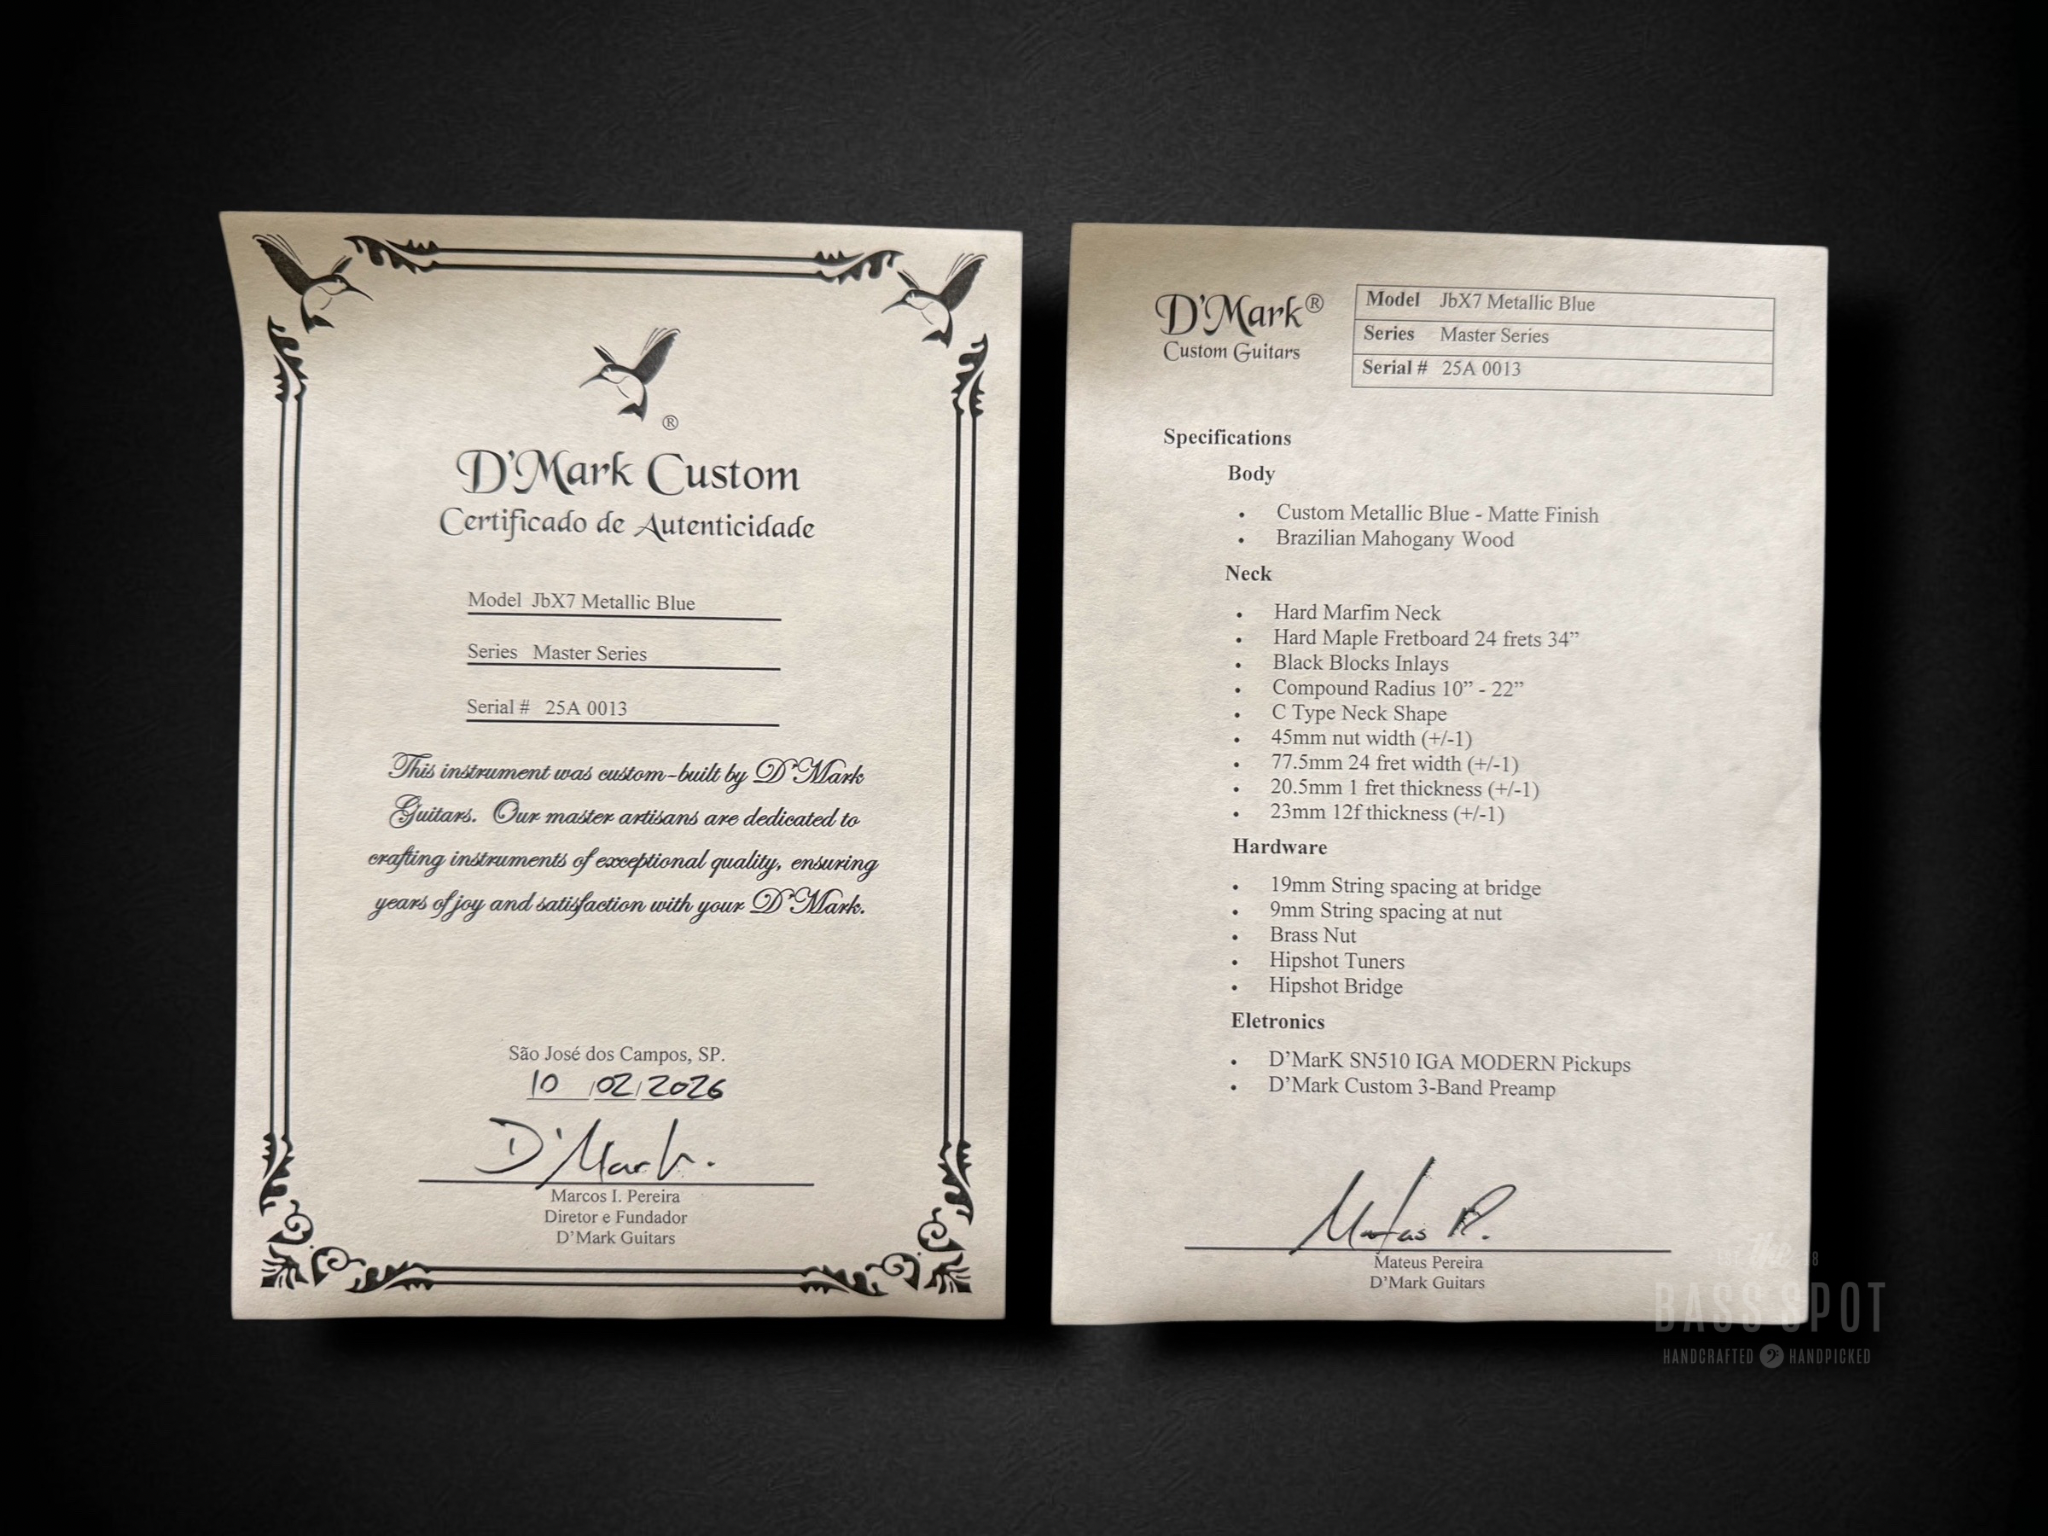 ®
D'Mark Custom
Certificado de Autenticidade
Model JbX7 Metallic Blue
Series Master Series
Serial # 25A 0013
This instrument was custom-built by D'Mark
Guitars. Our master artisans are dedicated to
crafting instruments of exceptional quality, ensuring
years of joy and satisfaction with your D'Mark.
São José dos Campos, SP.
10 /02/2026
D'Mark.
Marcos I. Pereira
Diretor e Fundador
D'Mark Guitars
D'Mark®
Custom Guitars
Model JbX7 Metallic Blue
Series Master Series
Serial # 25A 0013
Specifications
Body
• Custom Metallic Blue - Matte Finish
• Brazilian Mahogany Wood
Neck
• Hard Marfim Neck
• Hard Maple Fretboard 24 frets 34”
• Black Blocks Inlays
• Compound Radius 10” - 22”
• C Type Neck Shape
• 45mm nut width (+/-1)
• 77.5mm 24 fret width (+/-1)
• 20.5mm 1 fret thickness (+/-1)
• 23mm 12f thickness (+/-1)
Hardware
• 19mm String spacing at bridge
• 9mm String spacing at nut
• Brass Nut
• Hipshot Tuners
• Hipshot Bridge
Eletronics
• D’MarK SN510 IGA MODERN Pickups
• D’Mark Custom 3-Band Preamp
Mateus P.
Mateus Pereira
D’Mark Guitars
the
BASS SPOT
HANDCRAFTED HANDPICKED